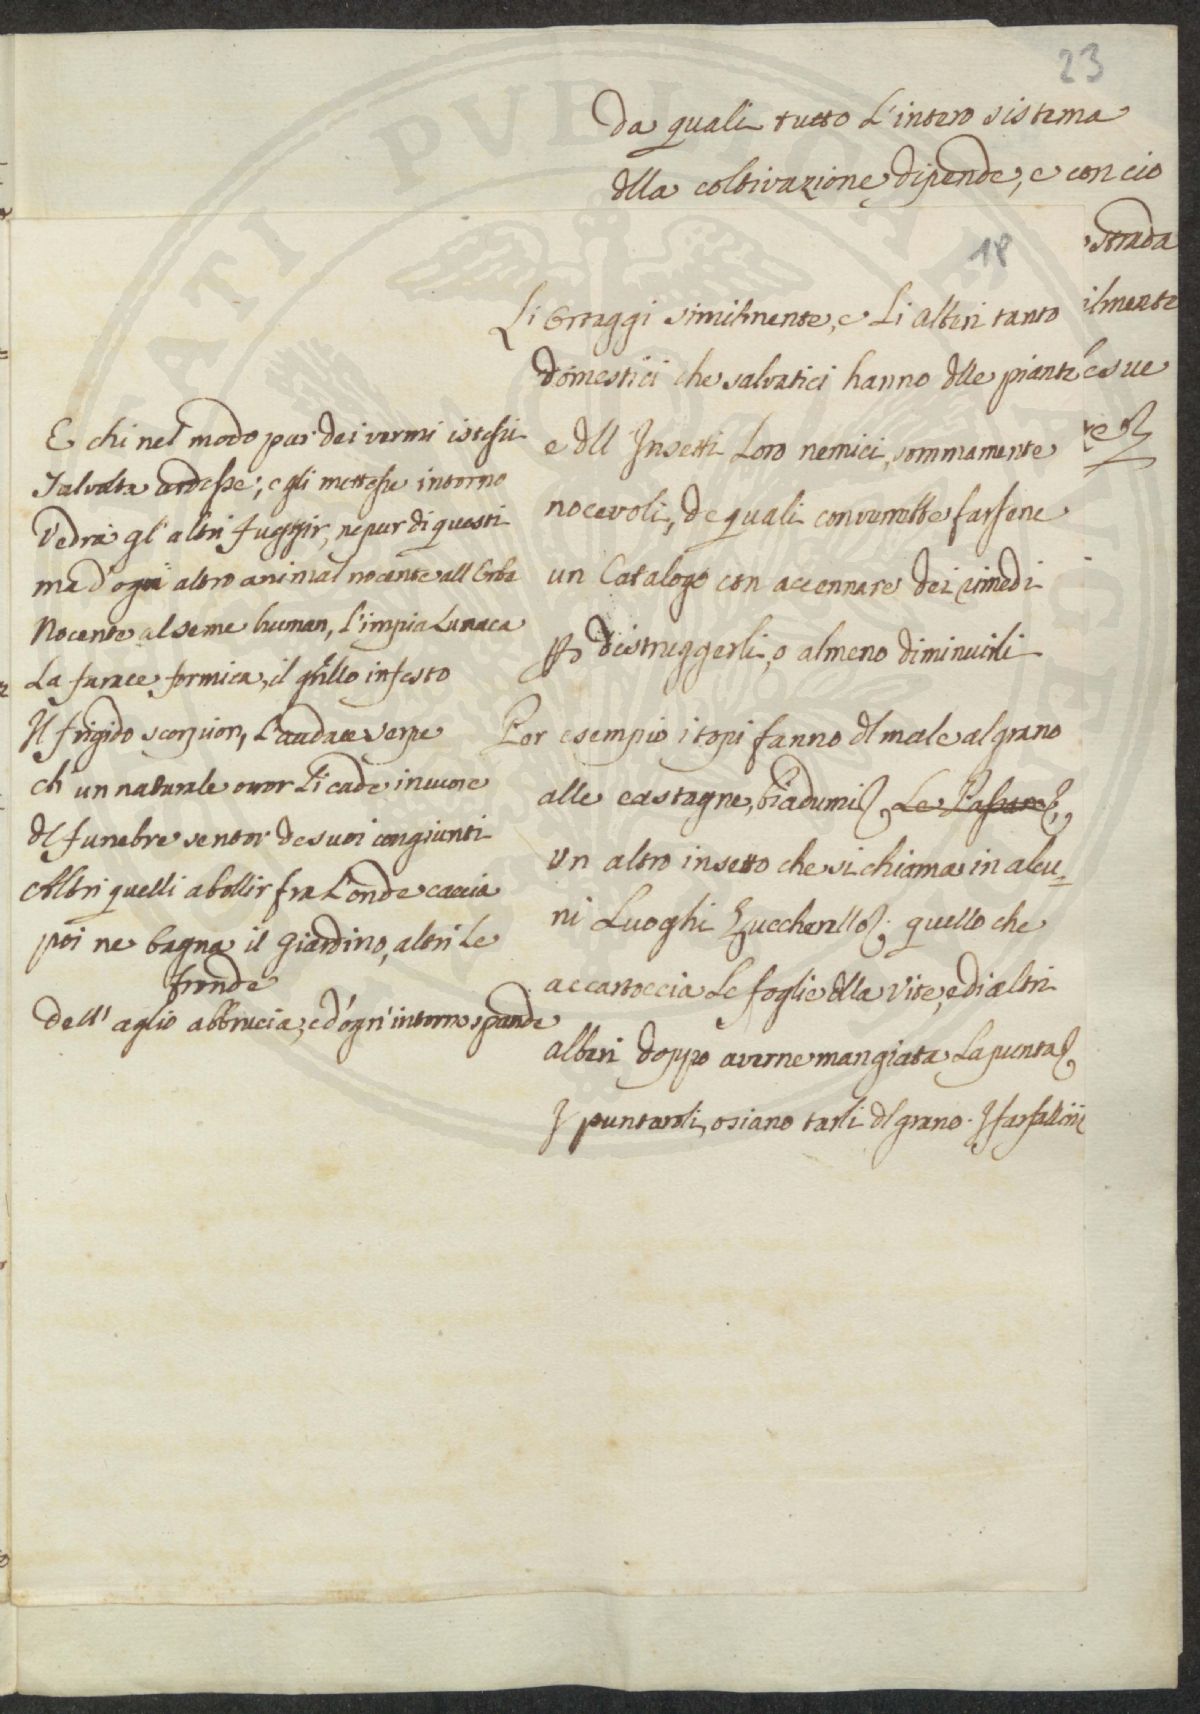 23
da quali tutto L'intero sistema
dlla coltivazione dipende, e con cio
strada
ilmente
e sue
18
Li Ortaggi similmente, e Li alberi tanto
domestici che salvatici hanno dlle piante
e dll Insetti Loro nemici, sommamente
nocevoli, de quali converrebbe farsene
un Catalogo con accennare dei rimedi
p distruggerli, o almeno diminuirli
Per esempio i topi fanno dl male al grano
alle castagne, biadumi Le Passare
Un altro insetto che si chiama in alcu=
ni Luoghi Zuccherello. quello che
accartoccia Le foglie dlla Vite, e di altri
alberi doppo averne mangiata La punta
I puntaroli, o siano tarli dl grano. I farfallini
E chi nel modo par dei vermi istessi
Talvolta ardesse; e gli mettesse intorno
Vedria gl' altri fuggir; ne pur di questi
ma d'ogni altro animal nocente all Erba
Nocente al seme human, l'impia Lumaca
La furace formica, il grillo infesto
Il frigido scorpion, l'audace serpe
ch' un naturale orror Li cade in cuore
dl funebre sentor de suoi congiunti
Altri quelli a bollir fra L'onde caccia
poi ne bagna il Giardino, altri Le
fronde
Dell' aglio abbrucia, e d'ogn' intorno spande